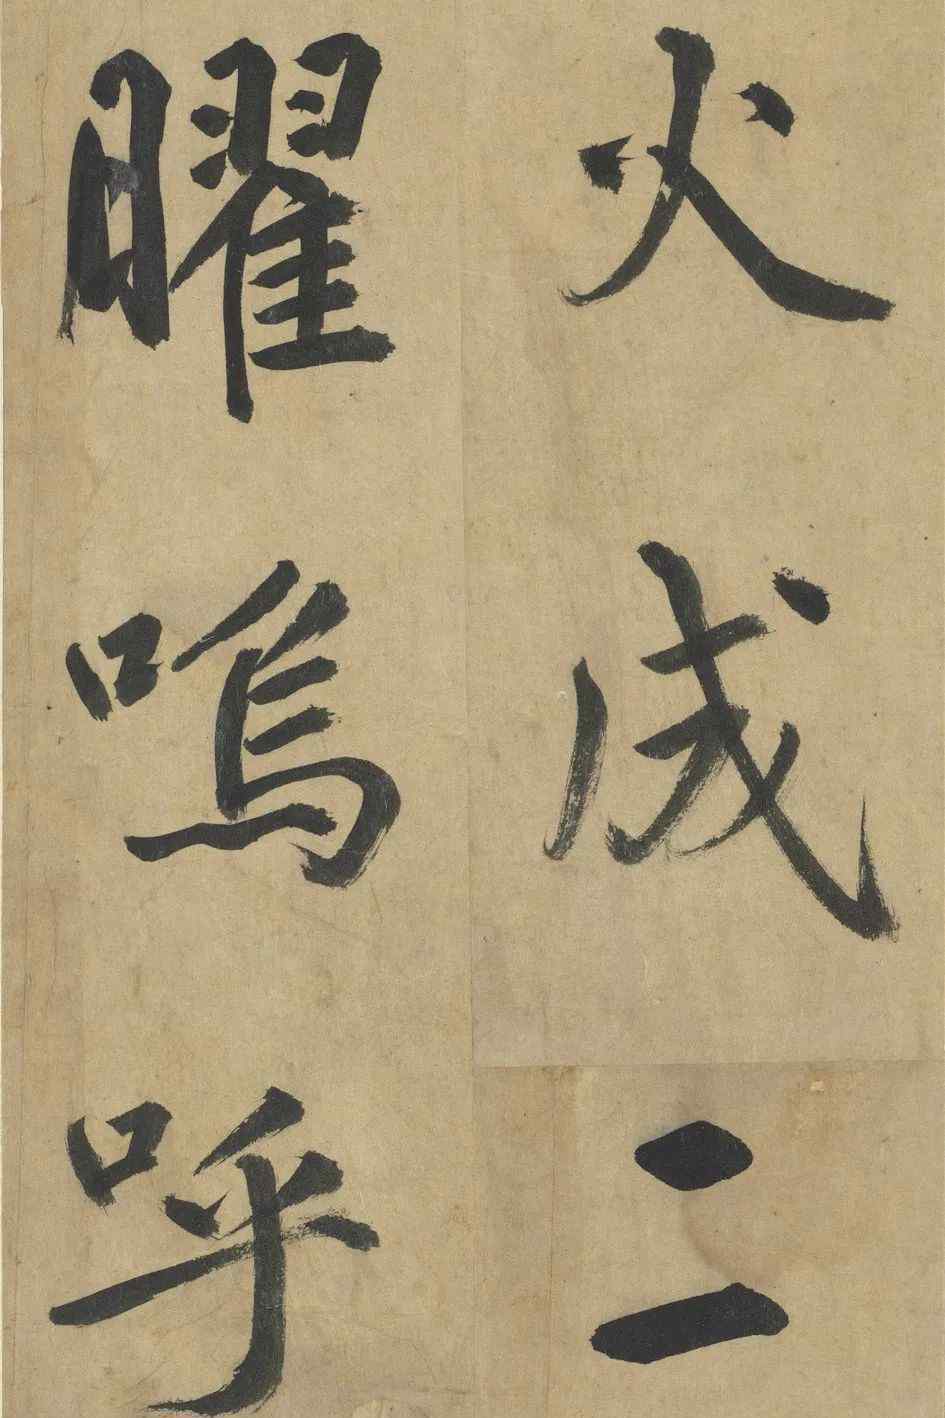 火成二
曜嗚呼